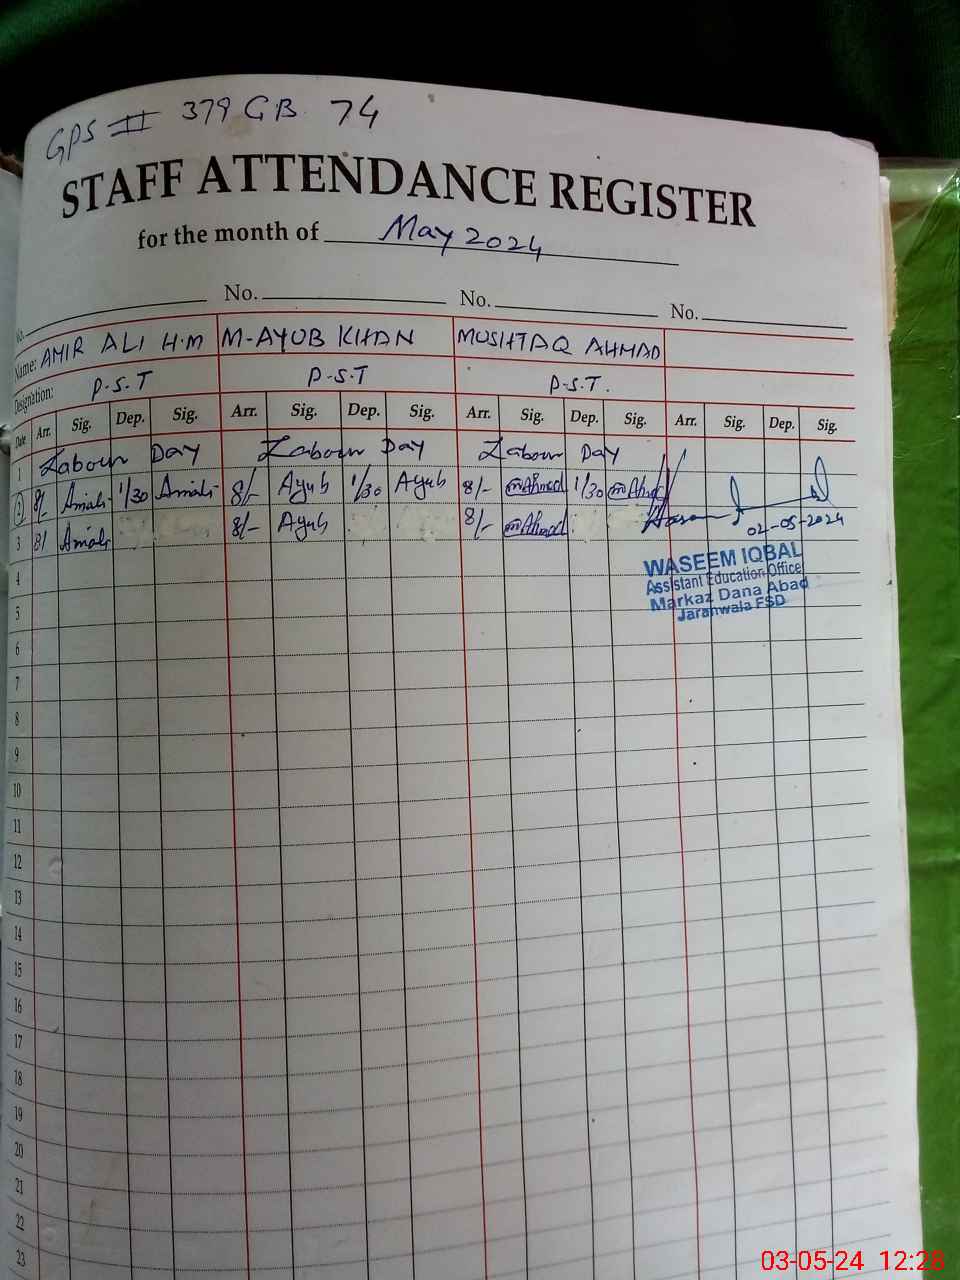 GPS II 379 GB 74
STAFF ATTENDANCE REGISTER
for the month of May 2024
No. No. No. No.
Name: AMIR ALI H.M M-AYUB KHAN MUSHTAQ AHMAD
Designation: P.S.T P.S.T P.S.T.
Date Arr. Sig. Dep. Sig. Arr. Sig. Dep. Sig. Arr. Sig. Dep. Sig. Arr. Sig. Dep. Sig.
1 Labour Day Labour Day Labour Day
2 8/- Amali 1/30 Amali 8/- Ayub 1/30 Ayub 8/- mAhmad 1/30 mAhmad
3 8/ Amali 8/- Ayub 8/- mAhmad
02-05-2024
WASEEM IQBAL
Assistant Education Office
Markaz Dana Abad
Jaranwala FSD
4
5
6
7
8
9
10
11
12
13
14
15
16
17
18
19
20
21
22
23
03-05-24 12:28